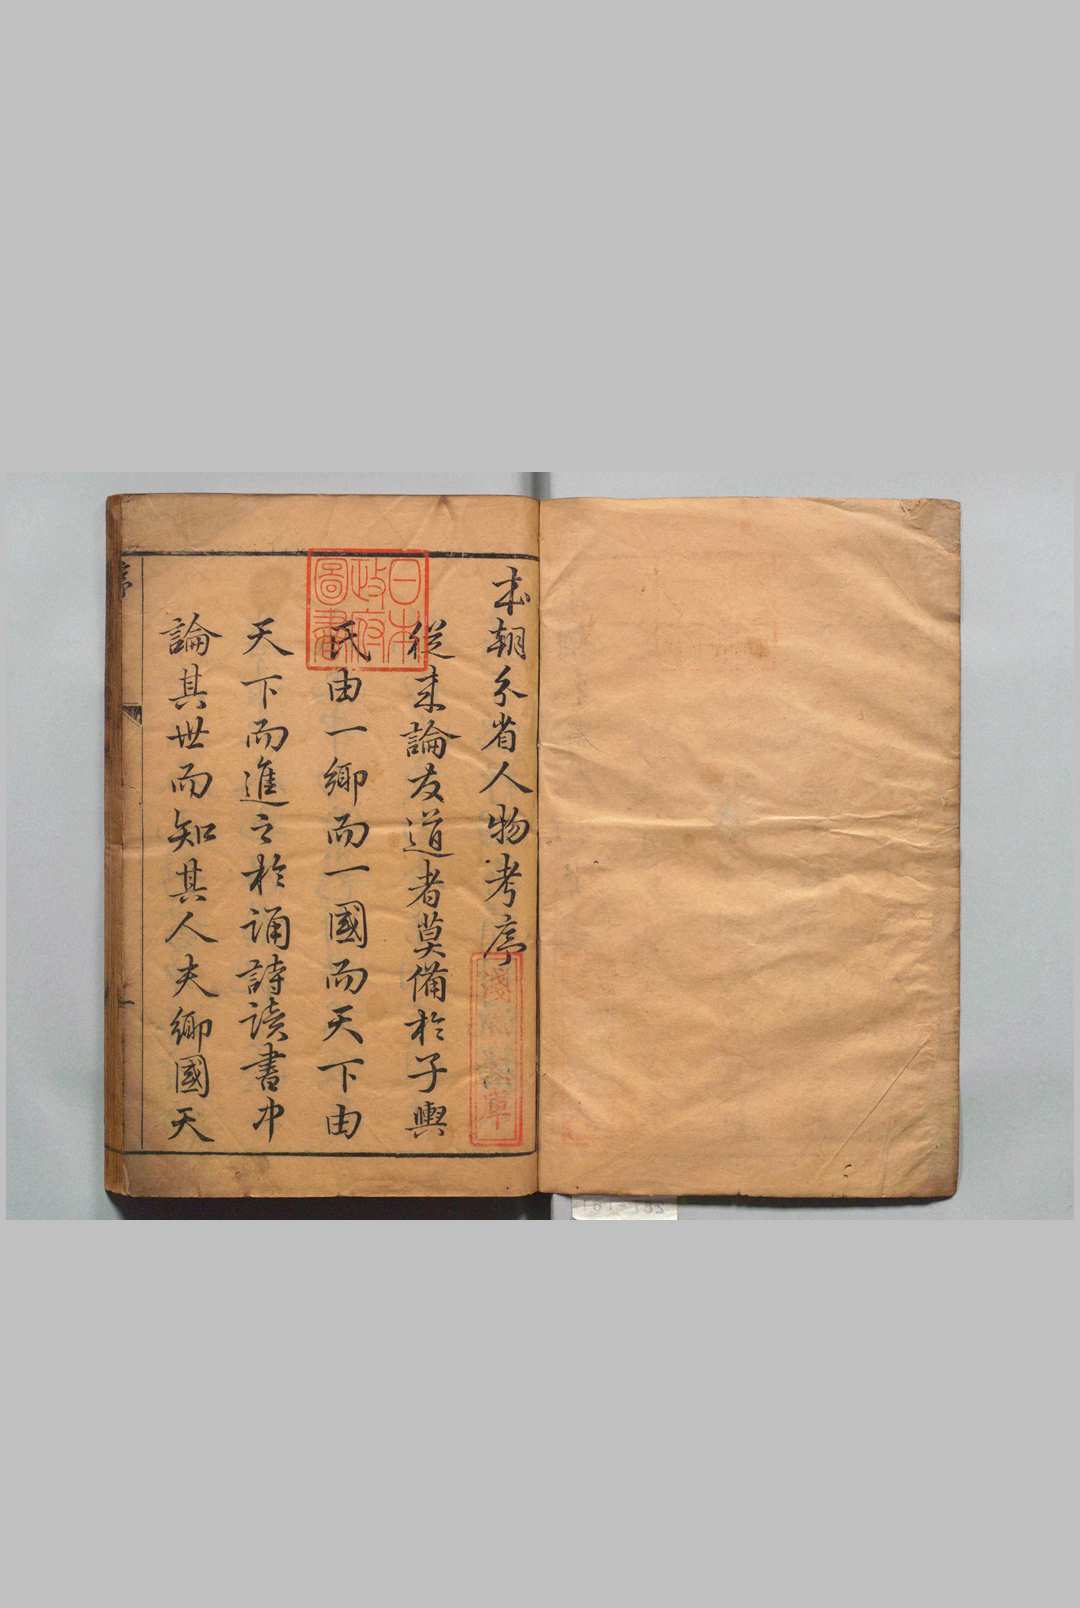 本朝分省人物考序
從來論友道者莫備於子輿
氏由一鄉而一國而天下由
天下而進之於誦詩讀書中
論其世而知其人夫鄉國天
日本
政府
圖書
淺草文庫
序
一